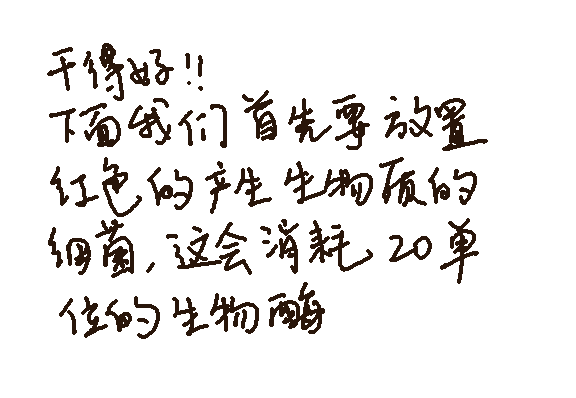 干得好!!
下面我们首先要放置
红色的产生生物质的
细菌,这会消耗20单
位的生物酶